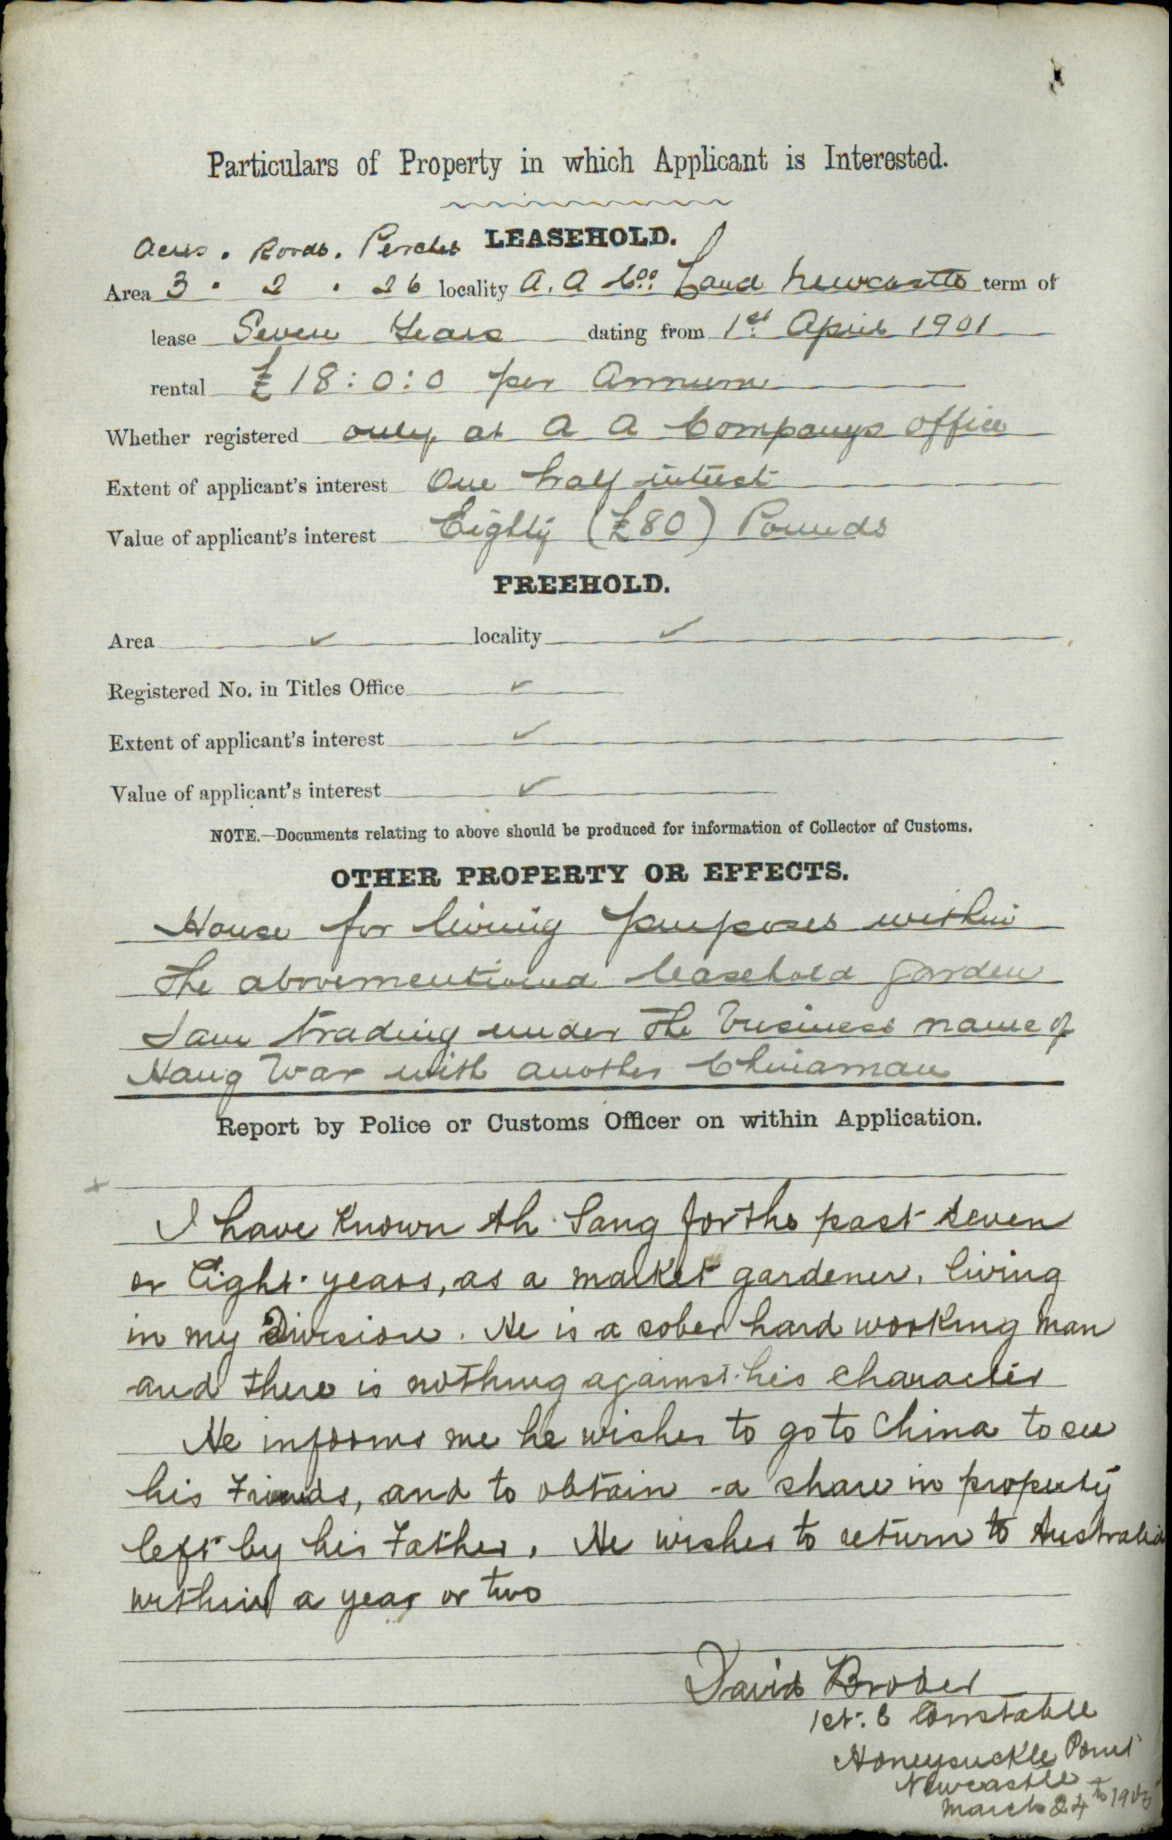 Particulars of Property in which Applicant is Interested.
LEASEHOLD.
Acres . Roods . Perches
Area 3 . 2 . 26 locality A. A Coo: Land Newcastle term of
lease Seven Years dating from 1st April 1901
rental £18:0:0 per Annum
Whether registered only at A A Companys office
Extent of applicant's interest One half interest
Value of applicant's interest Eighty (£80) Pounds
FREEHOLD.
Area ✓ locality ✓
Registered No. in Titles Office ✓
Extent of applicant's interest ✓
Value of applicant's interest ✓
NOTE.—Documents relating to above should be produced for information of Collector of Customs.
OTHER PROPERTY OR EFFECTS.
House for living purposes within
the abovementioned leasehold garden
I am trading under the business name of
Hang War with another Chinaman
Report by Police or Customs Officer on within Application.
I have known Ah Sang for the past seven
or Eight years, as a market gardener, living
in my Division. He is a sober hard working man
and there is nothing against his character
He informs me he wishes to go to China to see
his Friends, and to obtain a share in property
left by his Father. He wishes to return to Australia
within a year or two
David
1st. C Constable
Honeysuckle Point
Newcastle
March 24th